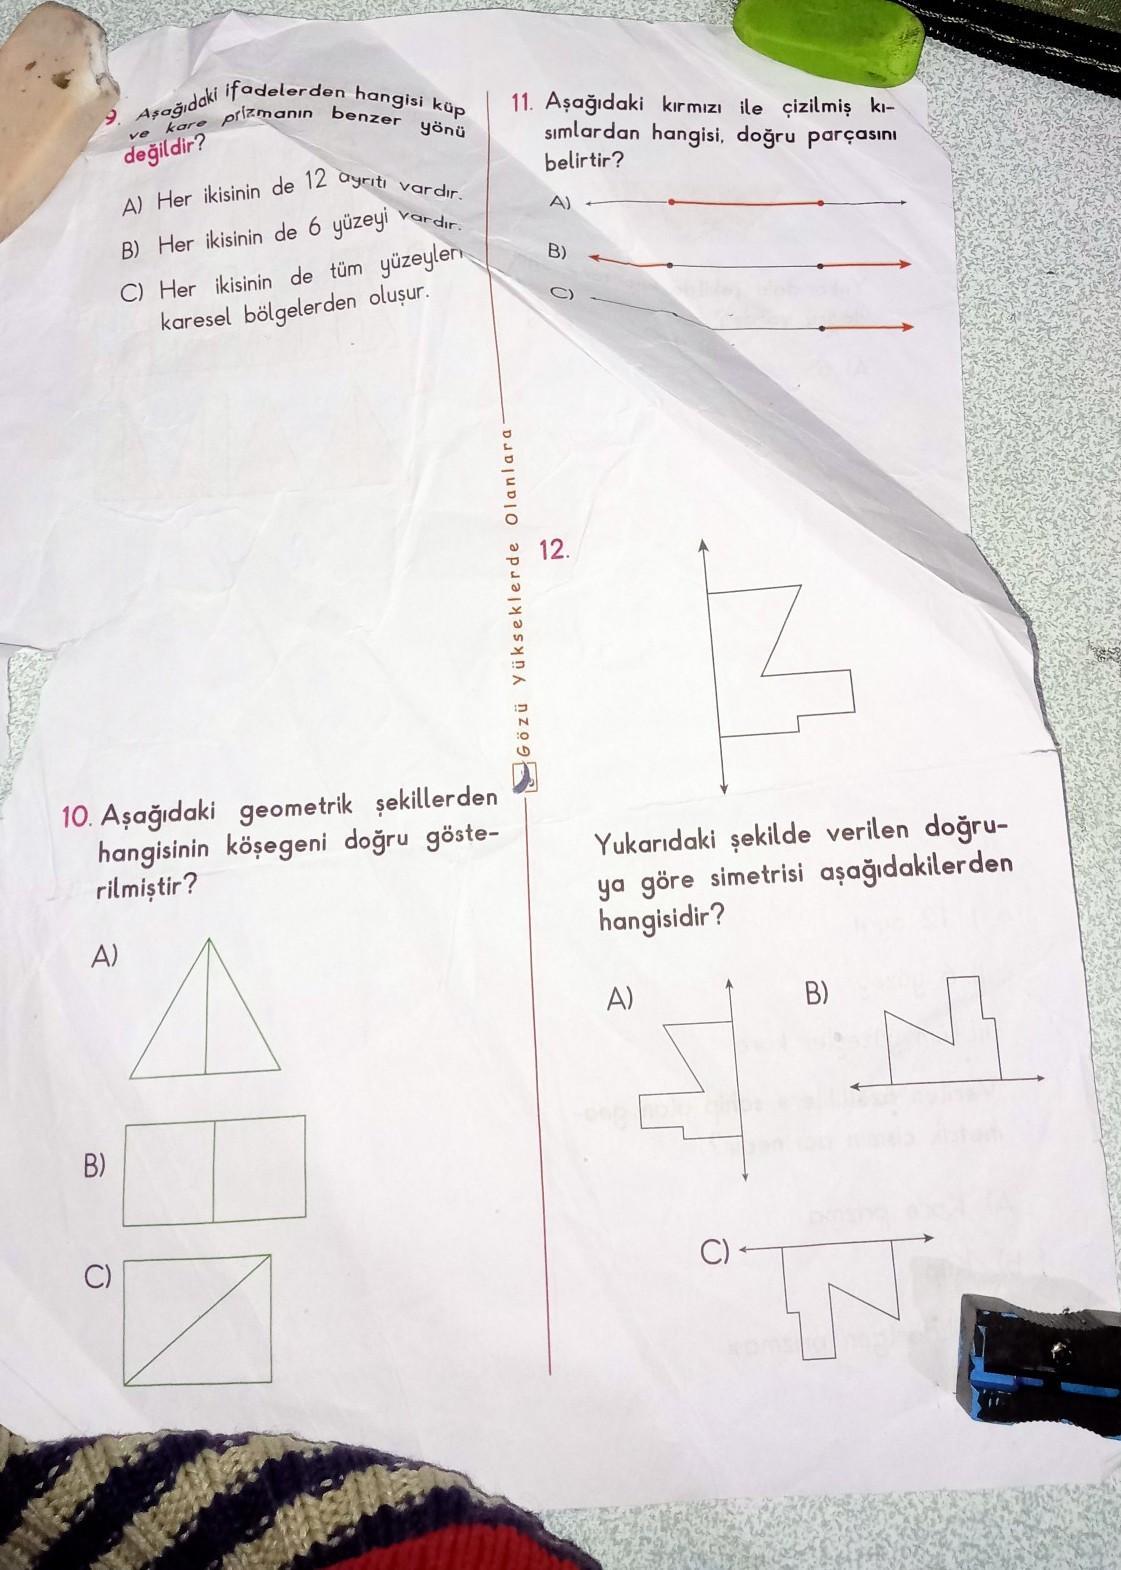 9. Aşağıdaki ifadelerden hangisi küp
ve kare prizmanın benzer yönü
değildir?
A) Her ikisinin de 12 ayrıtı vardır.
B) Her ikisinin de 6 yüzeyi vardır.
C) Her ikisinin de tüm yüzeyleri
karesel bölgelerden oluşur.
10. Aşağıdaki geometrik şekillerden
hangisinin köşegeni doğru göste-
rilmiştir?
A)
B)
C)
Gözü Yükseklerde Olanlara
11. Aşağıdaki kırmızı ile çizilmiş kı-
sımlardan hangisi, doğru parçasını
belirtir?
A)
B)
C)
12.
Yukarıdaki şekilde verilen doğru-
ya göre simetrisi aşağıdakilerden
hangisidir?
A)
B)
C)